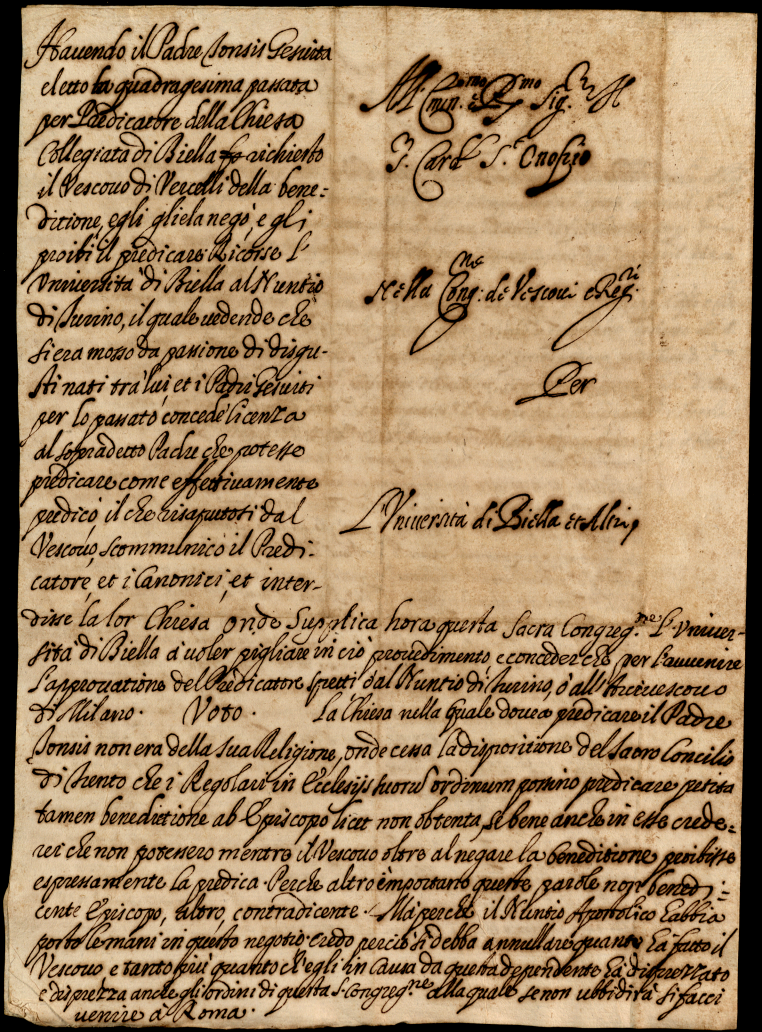 Havendo il Padre Gesuita
eletto la quadragesima passata
per Predicatore della Chiesa
Collegiata di Biella richiesto
il Vescovo di Vercelli della bene=
ditione, egli gliela negò, e gli
proibì il predicare. Ricorse l'
Università di Biella al Nuntio
di Turino, il quale vedendo che
si era mosso da passione di disgu-
sti nati trà lui, et i Padri Gesuiti
per lo passato, concede licenza
al sopradetto Padre che potesse
predicare come effettivamente
predicò, il che risaputosi dal
Vescovo, scommunicò il Predi-
catore, et i Canonici, et inter-
disse la lor Chiesa onde Supplica hora questa Sacra Congreg.ne l'Univer-
sità di Biella à voler pigliare in ciò provedimento, e conceder che per l'avvenire
l'approvatione del Predicatore spetti ò al Nuntio di Turino, ò all'Arcivescovo
di Milano. Voto. La Chiesa nella quale dovea predicare il Padre
non era della sua Religione, onde cessa la dispositione del Sacro Concilio
di Trento che i Regolari in Ecclesijs suorum ordinum possino predicare petita
tamen benedictione ab Episcopo licet non obtenta, se bene anche in esse crede=
rei che non potessero mentre il Vescovo oltre al negare la beneditione proibisse
espressamente la predica. Perche altro importano queste parole non benedi=
cente Episcopo, altro, contradicente. Mà perche il Nuntio Apostolico habbia
posto le mani in questo negotio credo perciò si debba annullare quanto hà fatto il
Vescovo, e tanto più quanto ch'egli in Causa da questa dependente hà disprezzato
e disprezza anche gli ordini di questa S. Congreg.ne alla quale se non ubbidirà si facci
venire à Roma.
All' Emin.mo e R.mo Sig.r
Card. S. Onofrio
Nella Cong.ne de Vescovi e Reg.ri
Per
L'Università di Biella et Altri